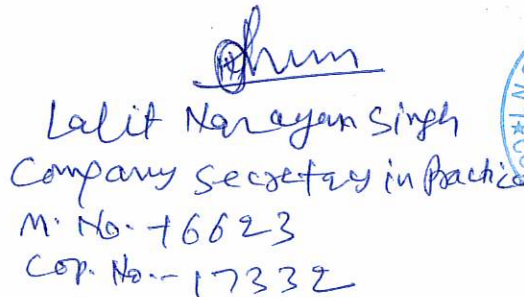 Lalit Narayan Singh
Company Secretary in Practice
M. No. -16623
Cop. No. - 17332